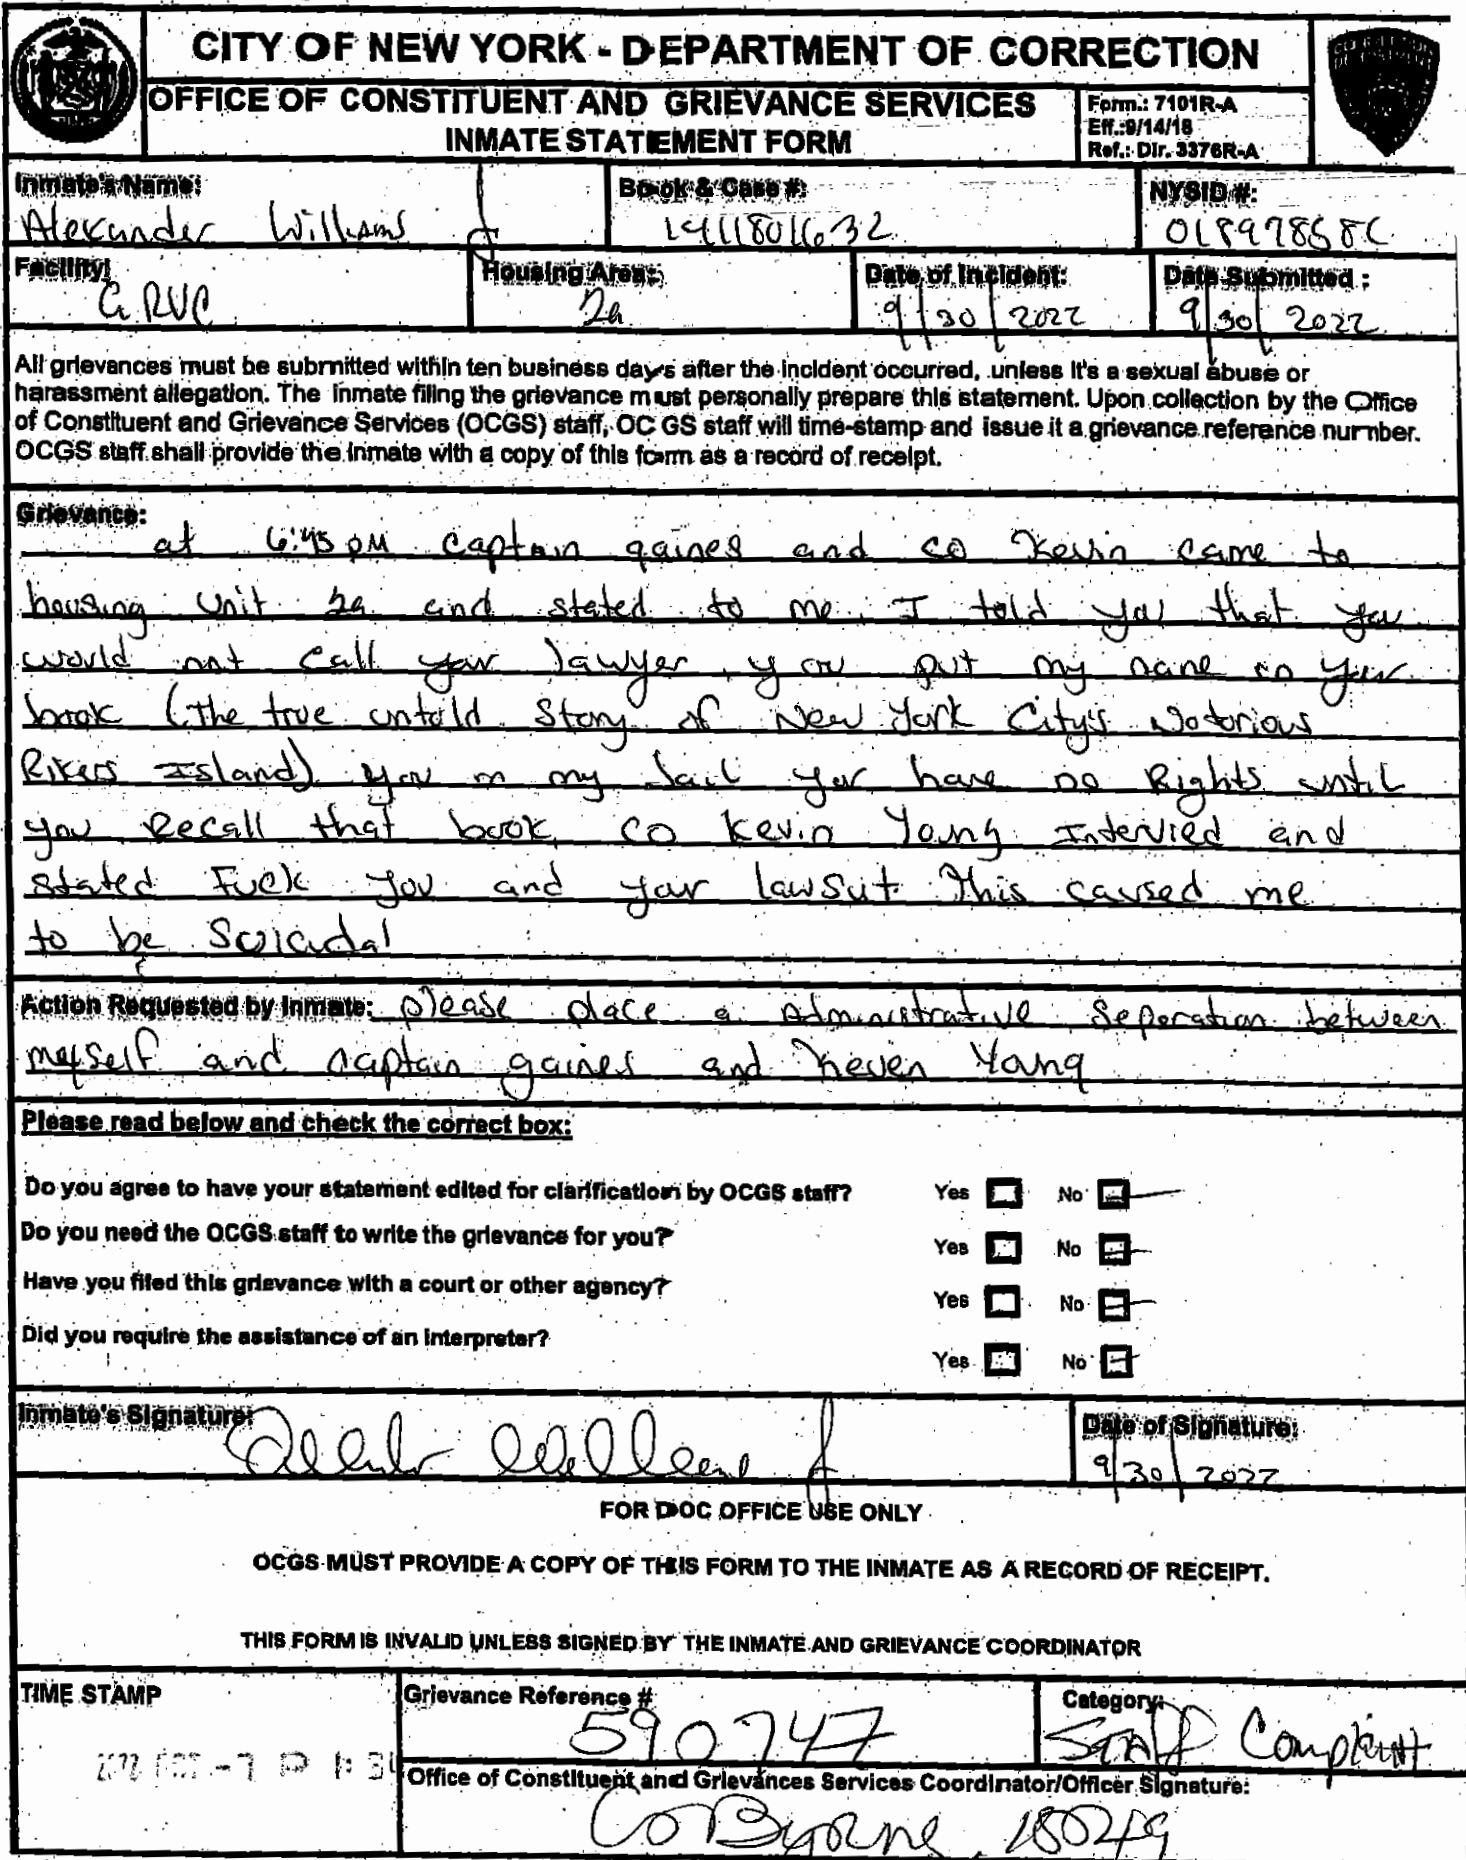 CITY OF NEW YORK - DEPARTMENT OF CORRECTION
OFFICE OF CONSTITUENT AND GRIEVANCE SERVICES
INMATE STATEMENT FORM
Form.: 7101R-A
Eff.:9/14/18
Ref.: Dir. 3376R-A
Inmate's Name:
Alexander Williams J
Book & Case #:
1411801632
NYSID #:
01897858C
Facility:
GRVC
Housing Area:
2a
Date of Incident:
9/30/2022
Date Submitted :
9/30/2022
All grievances must be submitted within ten business days after the incident occurred, unless it's a sexual abuse or
harassment allegation. The inmate filing the grievance must personally prepare this statement. Upon collection by the Office
of Constituent and Grievance Services (OCGS) staff, OCGS staff will time-stamp and issue it a grievance reference number.
OCGS staff shall provide the inmate with a copy of this form as a record of receipt.
Grievance:
at 6:45 pm captain gaines and co Kevin came to
housing unit 2a and stated to me. I told you that you
would not call your lawyer, you put my name in your
book (The true untold Story of New York City's Notorious
Rikers Island) you in my Jail you have no Rights until
you Recall that book, co Kevin Young Intervied and
stated Fuck you and your lawsut This caused me
to be Suicidal
Action Requested by Inmate: please place a Administrative Seperation between
myself and captain gaines and keven Young
Please read below and check the correct box:
Do you agree to have your statement edited for clarification by OCGS staff? Yes No
Do you need the OCGS staff to write the grievance for you? Yes No
Have you filed this grievance with a court or other agency? Yes No
Did you require the assistance of an interpreter? Yes No
Inmate's Signature:
Date of Signature:
9/30/2022
FOR DOC OFFICE USE ONLY
OCGS MUST PROVIDE A COPY OF THIS FORM TO THE INMATE AS A RECORD OF RECEIPT.
THIS FORM IS INVALID UNLESS SIGNED BY THE INMATE AND GRIEVANCE COORDINATOR
TIME STAMP
-7 P 1:3
Grievance Reference #
590747
Category:
Staff Complaint
Office of Constituent and Grievances Services Coordinator/Officer Signature:
Co Byrne 18049